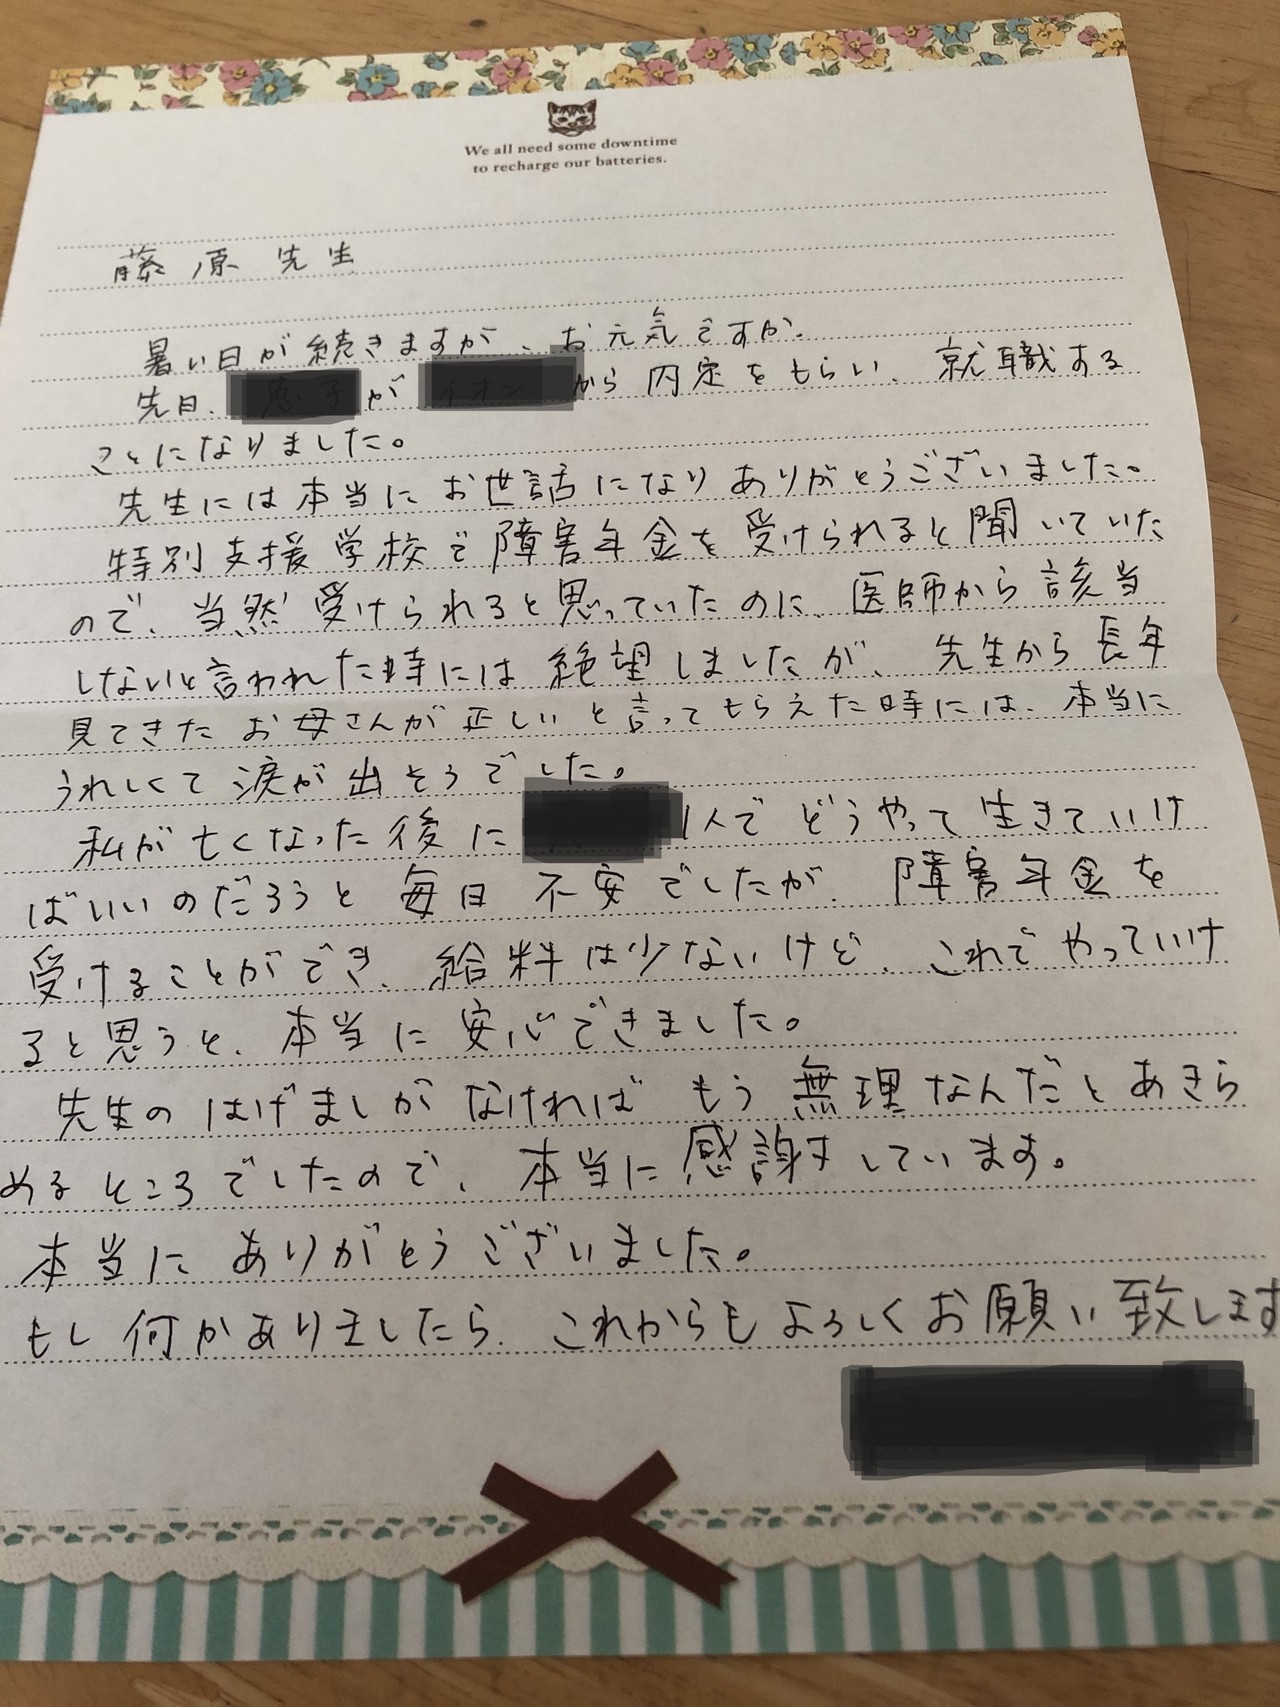 We all need some downtime
to recharge our batteries.
藤原先生
暑い日が続きますが、お元気ですか。
先日、が から内定をもらい、就職する
ことになりました。
先生には本当にお世話になりありがとうございました。
特別支援学校で障害年金を受けられると聞いていた
ので、当然受けられると思っていたのに、医師から該当
しないと言われた時には絶望しましたが、先生から長年
見てきたお母さんが正しいと言ってもらえた時には、本当に
うれしくて涙が出そうでした。
私が亡くなった後に 1人でどうやって生きていけ
ばいいのだろうと毎日不安でしたが、障害年金を
受けることができ、給料は少ないけど、これでやっていけ
ると思うと、本当に安心できました。
先生のはげましがなければもう無理なんだとあきら
めるところでしたので、本当に感謝しています。
本当にありがとうございました。
もし何かありましたら、これからもよろしくお願い致します